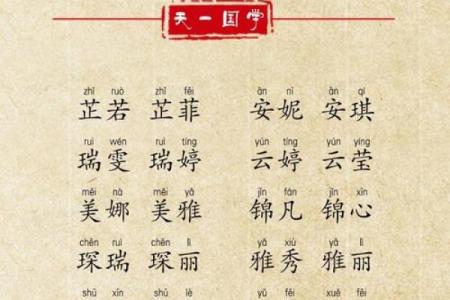 天一国学
zhǐ ruò zhǐ fēi ān nī ān qí
芷若 芷菲 安妮 安琪
ruì wén ruì tíng yún tíng yún yíng
瑞雯 瑞婷 云婷 云莹
měi nà měi yǎ jǐn fán jǐn xīn
美娜 美雅 锦凡 锦心
chēn ruì chēn lì yǎ xiù yǎ lì
琛瑞 琛丽 雅秀 雅丽
shū xīn shū lè yǔ fēi xuě fēi